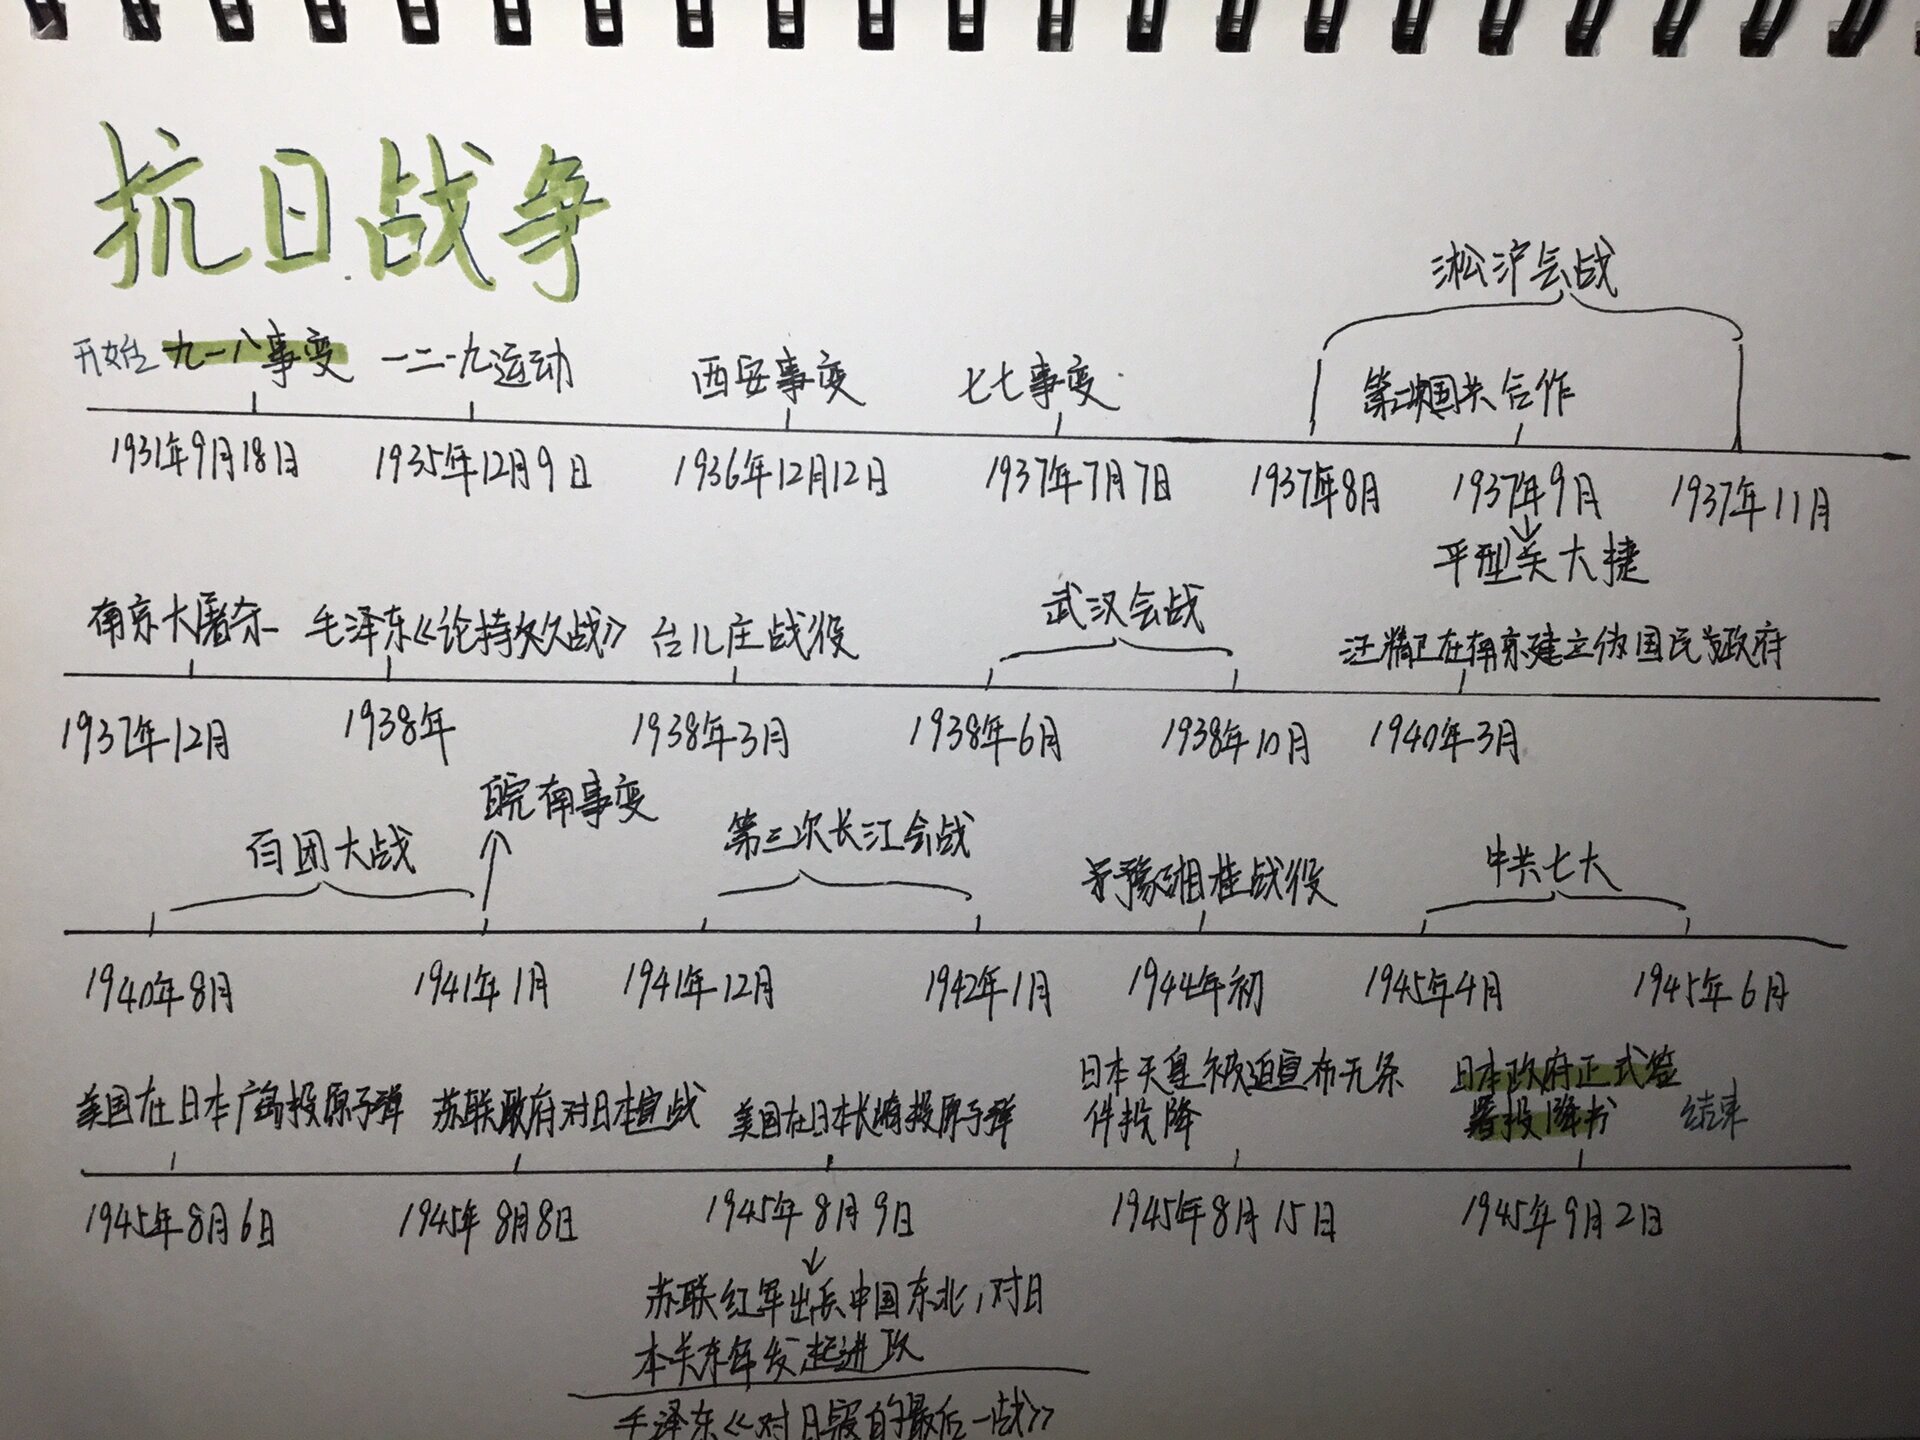 抗日战争
淞沪会战
开始 九一八事变 一二·九运动 西安事变 七七事变 第二次国共合作
1931年9月18日 1935年12月9日 1936年12月12日 1937年7月7日 1937年8月 1937年9月 1937年11月
平型关大捷
南京大屠杀 毛泽东《论持久战》 台儿庄战役 武汉会战 汪精卫在南京建立伪国民政府
1937年12月 1938年 1938年3月 1938年6月 1938年10月 1940年3月
皖南事变
百团大战 第三次长江会战 豫湘桂战役 中共七大
1940年8月 1941年1月 1941年12月 1942年1月 1944年初 1945年4月 1945年6月
美国在日本广岛投原子弹 苏联政府对日本宣战 美国在日本长崎投原子弹 日本天皇被迫宣布无条
件投降 日本政府正式签
署投降书 结束
1945年8月6日 1945年8月8日 1945年8月9日 1945年8月15日 1945年9月2日
苏联红军出兵中国东北,对日
本关东军发起进攻
毛泽东《对日寇的最后一战》